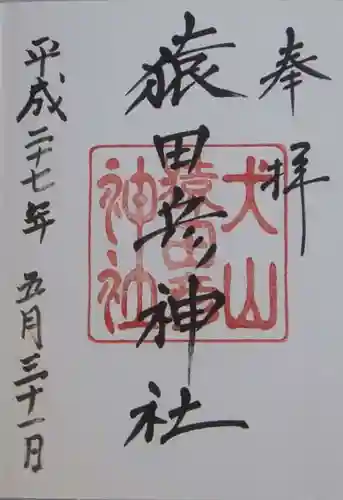 奉拝
猿田彦神社
平成二十七年 五月三十一日
犬山
猿田彦
神社